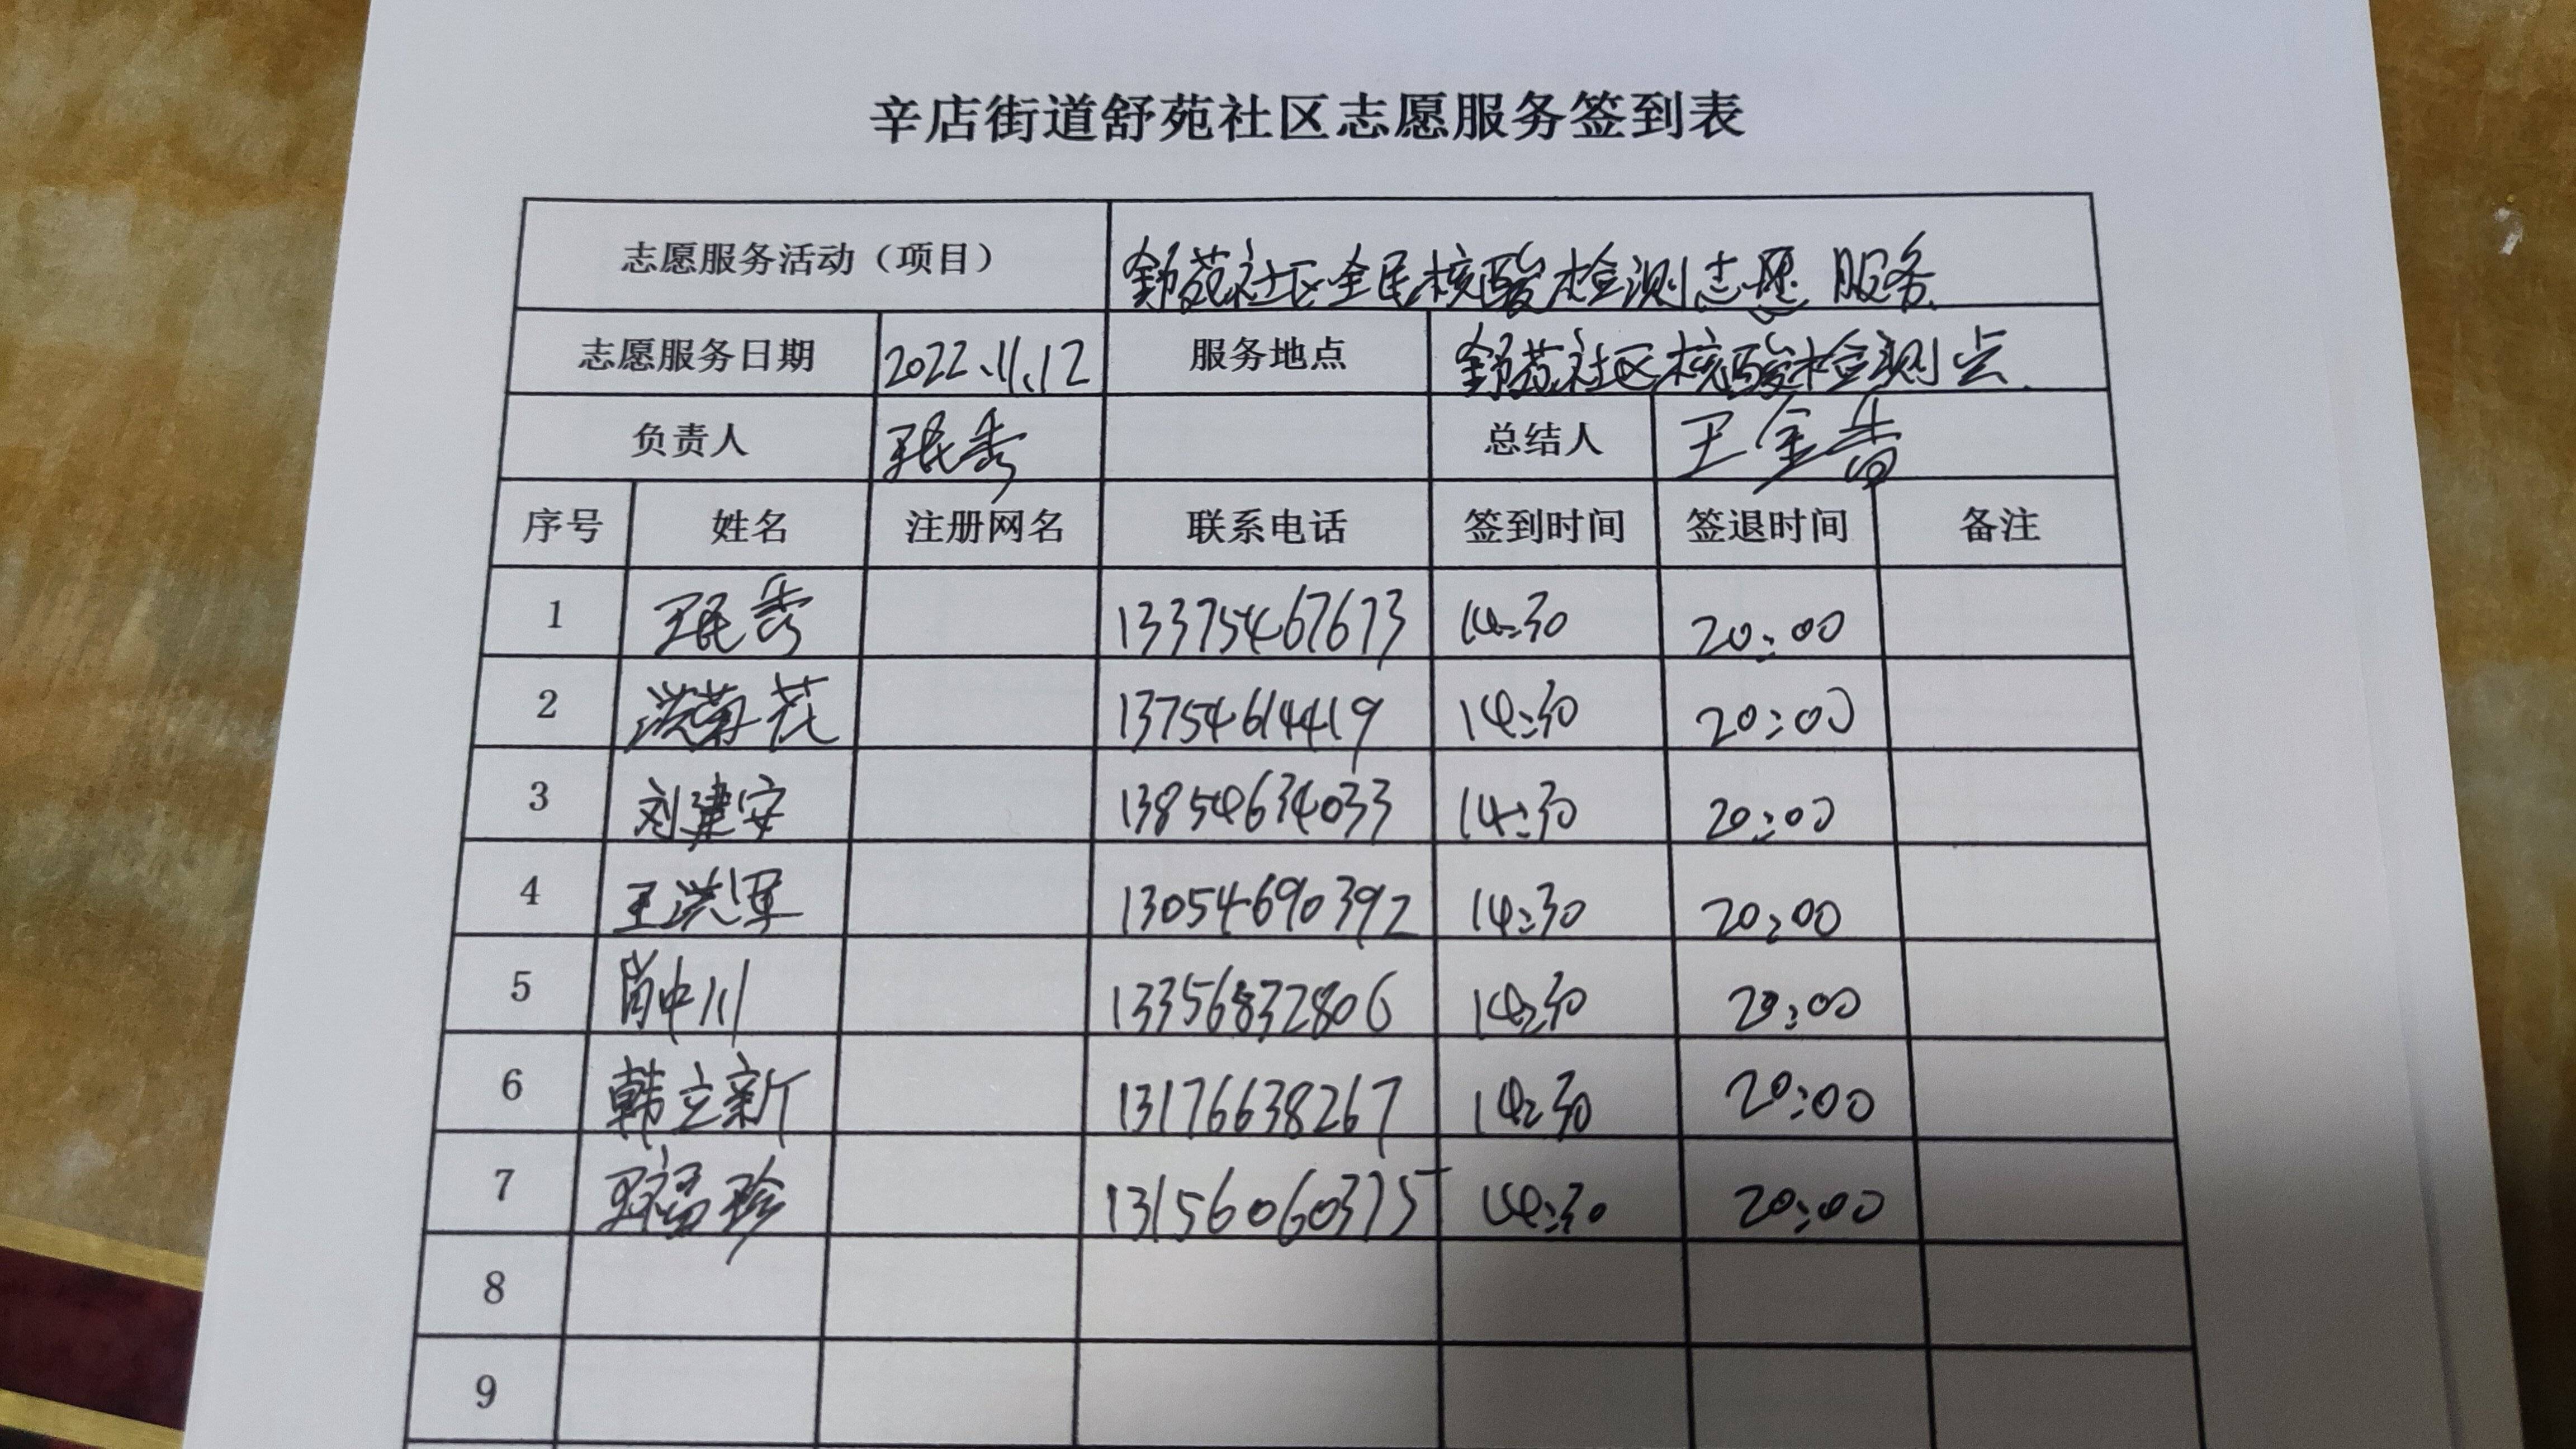 辛店街道舒苑社区志愿服务签到表
志愿服务活动（项目） 舒苑社区全民核酸检测志愿服务
志愿服务日期 2022.11.12 服务地点 舒苑社区核酸检测点
负责人 王民秀 总结人 王金香
序号 姓名 注册网名 联系电话 签到时间 签退时间 备注
1 王民秀 13375467673 14:30 20:00
2 洪菊花 13754614419 14:30 20:00
3 刘建安 13854634033 14:30 20:00
4 王洪军 13054690392 14:30 20:00
5 肖中川 13356832806 14:30 20:00
6 韩立新 13176638267 14:30 20:00
7 珍 13156060375 14:30 20:00
8
9